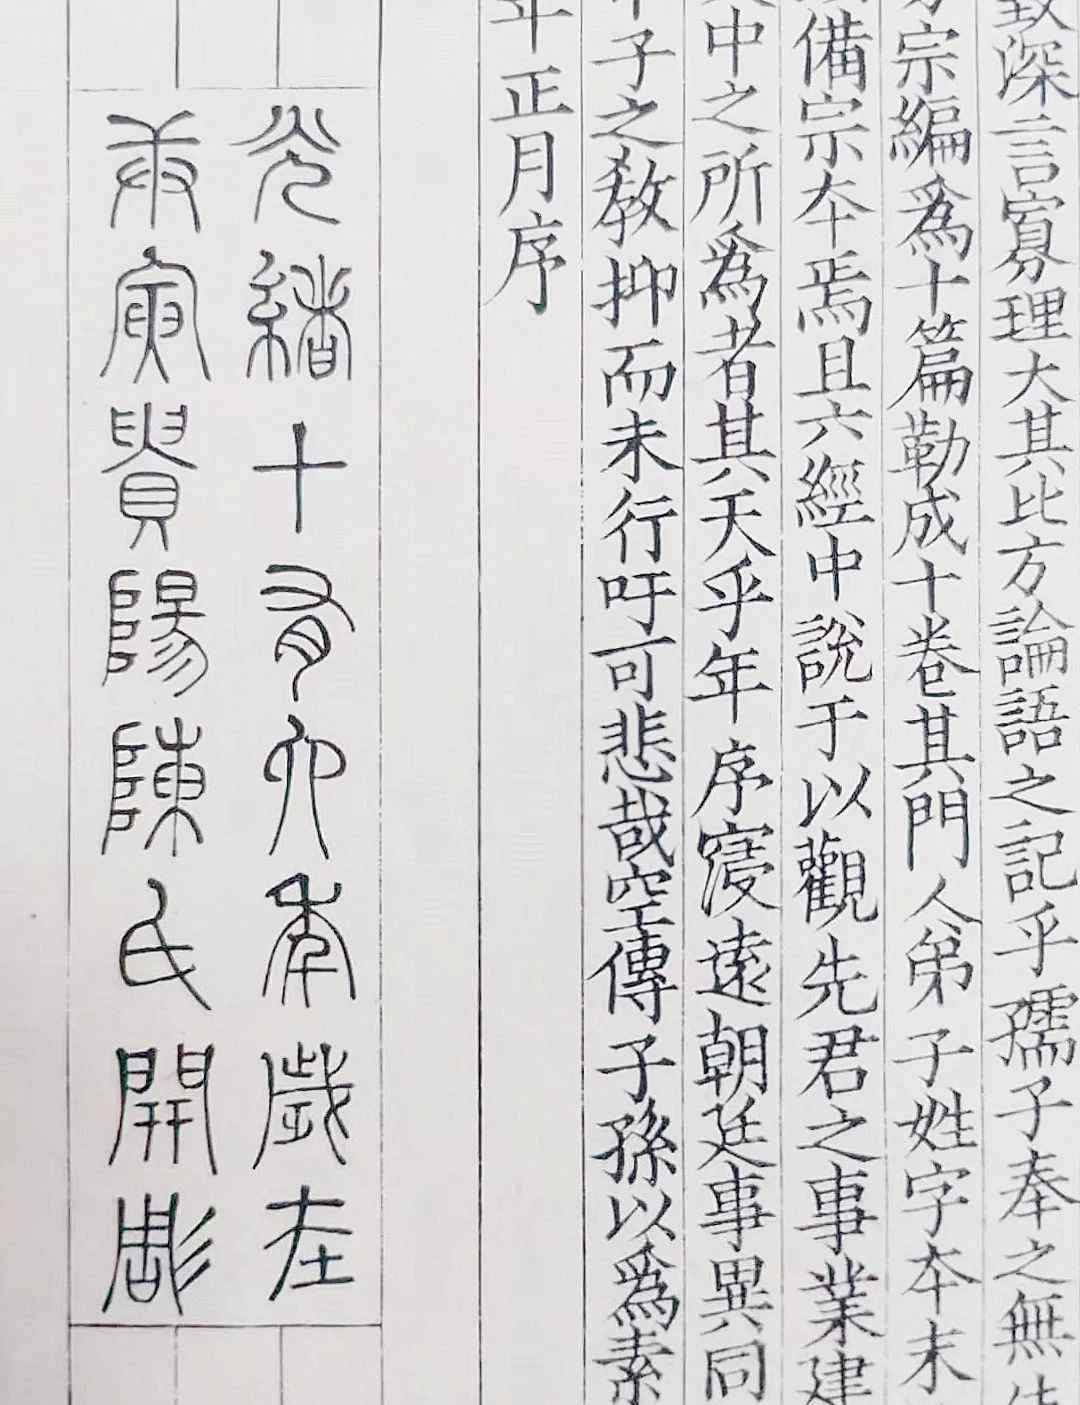 致深言寡理大其比方論語之記乎孺子奉之無
宗編爲十篇勒成十卷其門人弟子姓字本末
備宗本焉且六經中說于以觀先君之事業建
中之所爲者其天乎年序寖遠朝廷事異同
子之敎抑而未行吁可悲哉空傳子孫以爲素
年正月序
光緒十有六年歲在
庚寅貴陽陳氏開雕